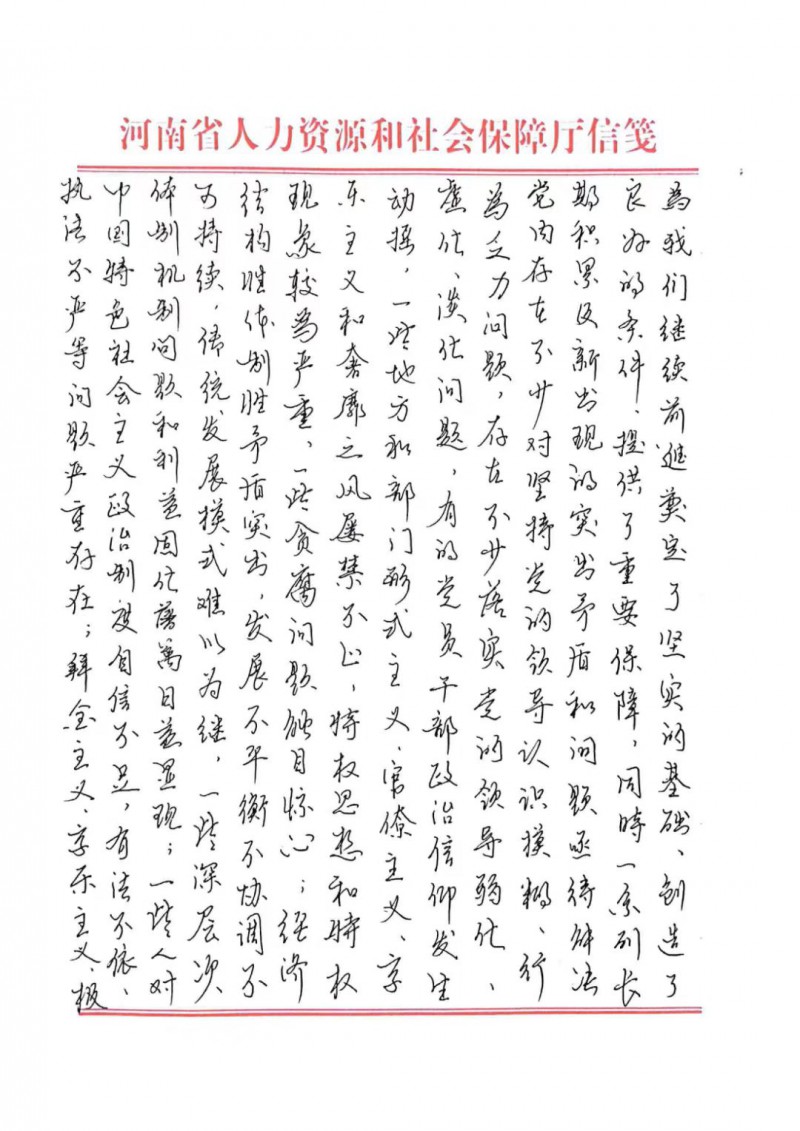 河南省人力资源和社会保障厅信笺
为我们继续前进奠定了坚实的基础、创造了
良好的条件、提供了重要保障，同时一系列长
期积累及新出现的突出矛盾和问题亟待解决
党内存在不少对坚持党的领导认识模糊、行
为乏力问题，存在不少落实党的领导弱化、
虚化、淡化问题，有的党员干部政治信仰发生
动摇，一些地方和部门形式主义、官僚主义、享
乐主义和奢靡之风屡禁不止，特权思想和特权
现象较为严重，一些贪腐问题触目惊心；经济
结构性体制性矛盾突出，发展不平衡不协调不
可持续，传统发展模式难以为继，一些深层次
体制机制问题和利益固化藩篱日益显现；一些人对
中国特色社会主义政治制度自信不足，有法不依、
执法不严等问题严重存在；拜金主义、享乐主义、极